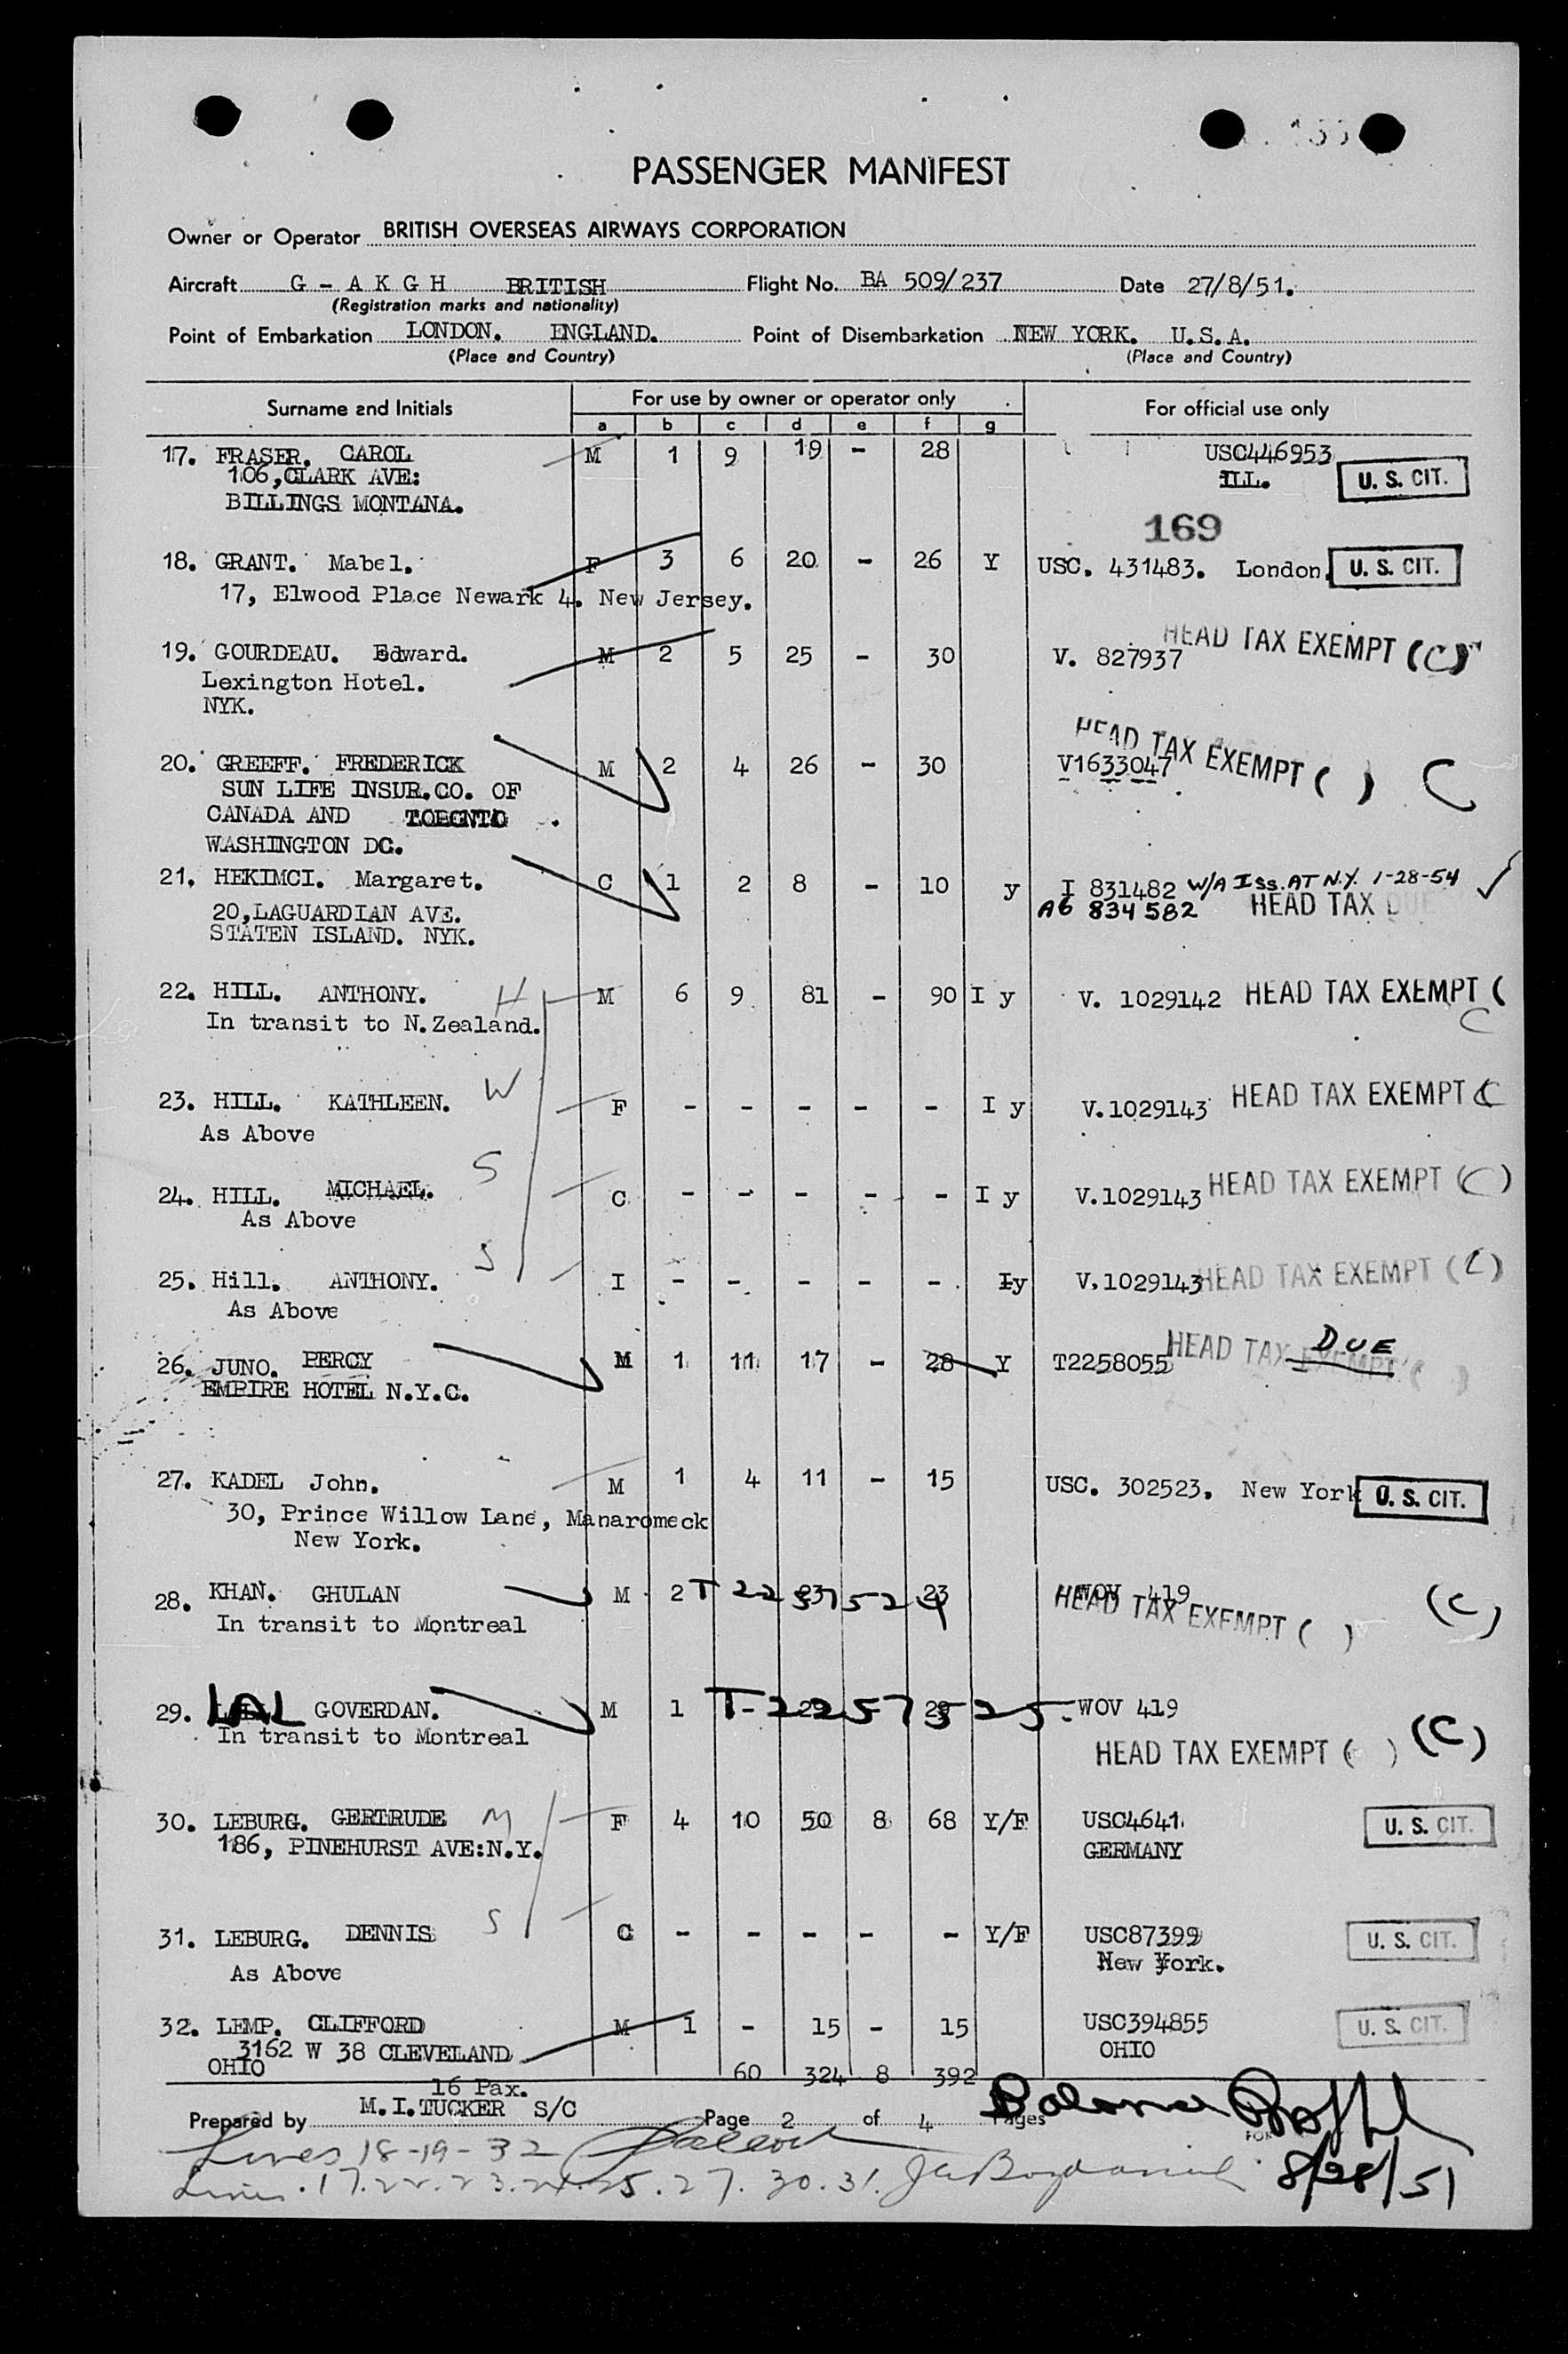 PASSENGER MANIFEST
Owner or Operator BRITISH OVERSEAS AIRWAYS CORPORATION
Aircraft G - A K G H BRITISH Flight No. BA 509/237 Date 27/8/51.
(Registration marks and nationality)
Point of Embarkation LONDON. ENGLAND. Point of Disembarkation NEW YORK. U.S.A.
(Place and Country) (Place and Country)
Surname and Initials For use by owner or operator only For official use only
a b c d e f g
17. FRASER. CAROL M 1 9 19 - 28 USC446953
106,CLARK AVE: ILL. U. S. CIT.
BILLINGS MONTANA.
169
18. GRANT. Mabel. F 3 6 20 - 26 Y USC. 431483. London. U. S. CIT.
17, Elwood Place Newark 4. New Jersey.
19. GOURDEAU. Edward. M 2 5 25 - 30 V. 827937 HEAD TAX EXEMPT (C)
Lexington Hotel.
NYK.
20. GREEFF. FREDERICK M 2 4 26 - 30 V1633047 HEAD TAX EXEMPT ( ) C
SUN LIFE INSUR.CO. OF
CANADA AND TORONTO .
WASHINGTON DC.
21. HEKIMCI. Margaret. C 1 2 8 - 10 y I 831482 W/A Iss. AT N.Y. 1-28-54
20,LAGUARDIAN AVE. A6 834 582 HEAD TAX DUE
STATEN ISLAND. NYK.
22. HILL. ANTHONY. H M 6 9 81 - 90 I y V. 1029142 HEAD TAX EXEMPT (
In transit to N.Zealand. C
23. HILL. KATHLEEN. W F - - - - - I y V.1029143 HEAD TAX EXEMPT (C
As Above
24. HILL. MICHAEL. S C - - - - - I y V.1029143 HEAD TAX EXEMPT (C)
As Above
25. Hill. ANTHONY. S I - - - - - Iy V.1029143 HEAD TAX EXEMPT (C)
As Above
26. JUNO. PERCY M 1 11 17 - 28 Y T2258055 HEAD TAX EXEMPT ( ) DUE
EMPIRE HOTEL N.Y.C.
27. KADEL John. M 1 4 11 - 15 USC. 302523. New York U. S. CIT.
30, Prince Willow Lane, Manaromeck
New York.
28. KHAN. GHULAN M 2 T 2257524 23 WOV 419
In transit to Montreal HEAD TAX EXEMPT ( ) (C)
29. LAL GOVERDAN. M 1 T-2257525 29 WOV 419
In transit to Montreal HEAD TAX EXEMPT ( ) (C)
30. LEBURG. GERTRUDE M F 4 10 50 8 68 Y/F USC4641 U. S. CIT.
186, PINEHURST AVE:N.Y. GERMANY
31. LEBURG. DENNIS S C - - - - - Y/F USC87399 U. S. CIT.
As Above New York.
32. LEMP. CLIFFORD M 1 - 15 - 15 USC394855 U. S. CIT.
3162 W 38 CLEVELAND OHIO
OHIO
60 324 8 392
16 Pax.
Prepared by M.I.TUCKER S/C Page 2 of 4 Pages
Lines 18-19-32
Lines. 17.22.23.24.25.27.30.31.
8/28/51